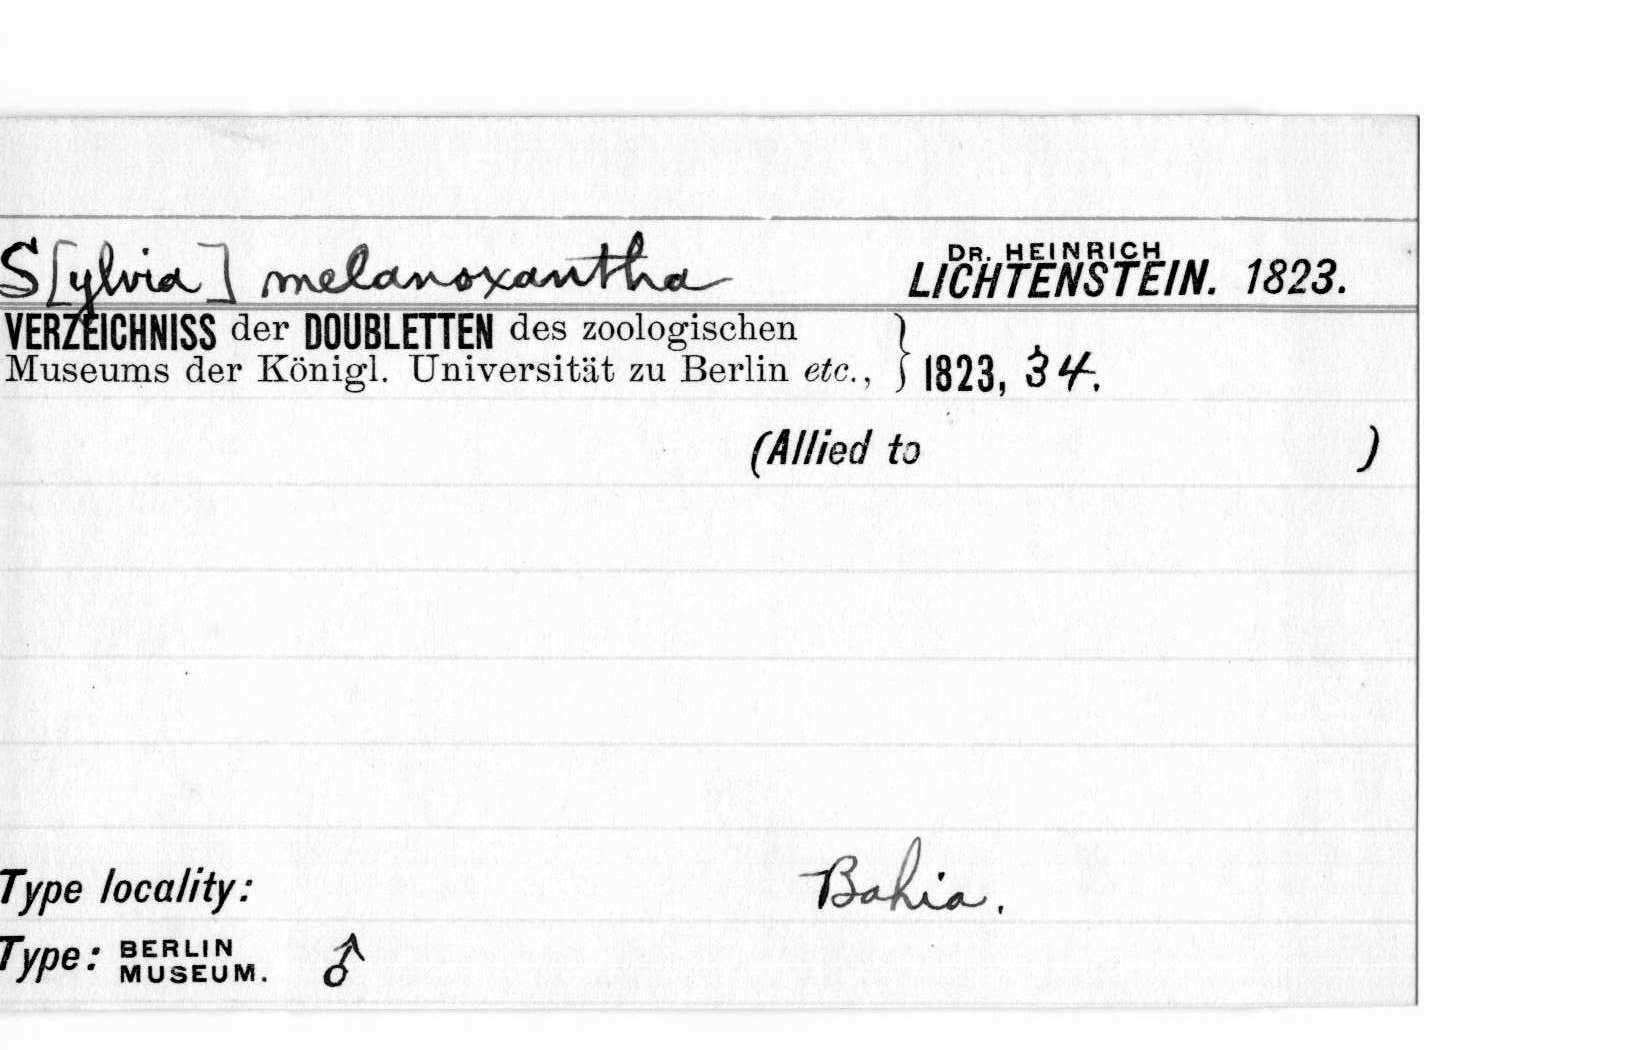 S[ylvia] melanoxantha DR. HEINRICH LICHTENSTEIN. 1823.
VERZEICHNISS der DOUBLETTEN des zoologischen
Museums der Königl. Universität zu Berlin etc., } 1823, 34.
(Allied to )
Type locality: Bahia.
Type: BERLIN MUSEUM. ♂